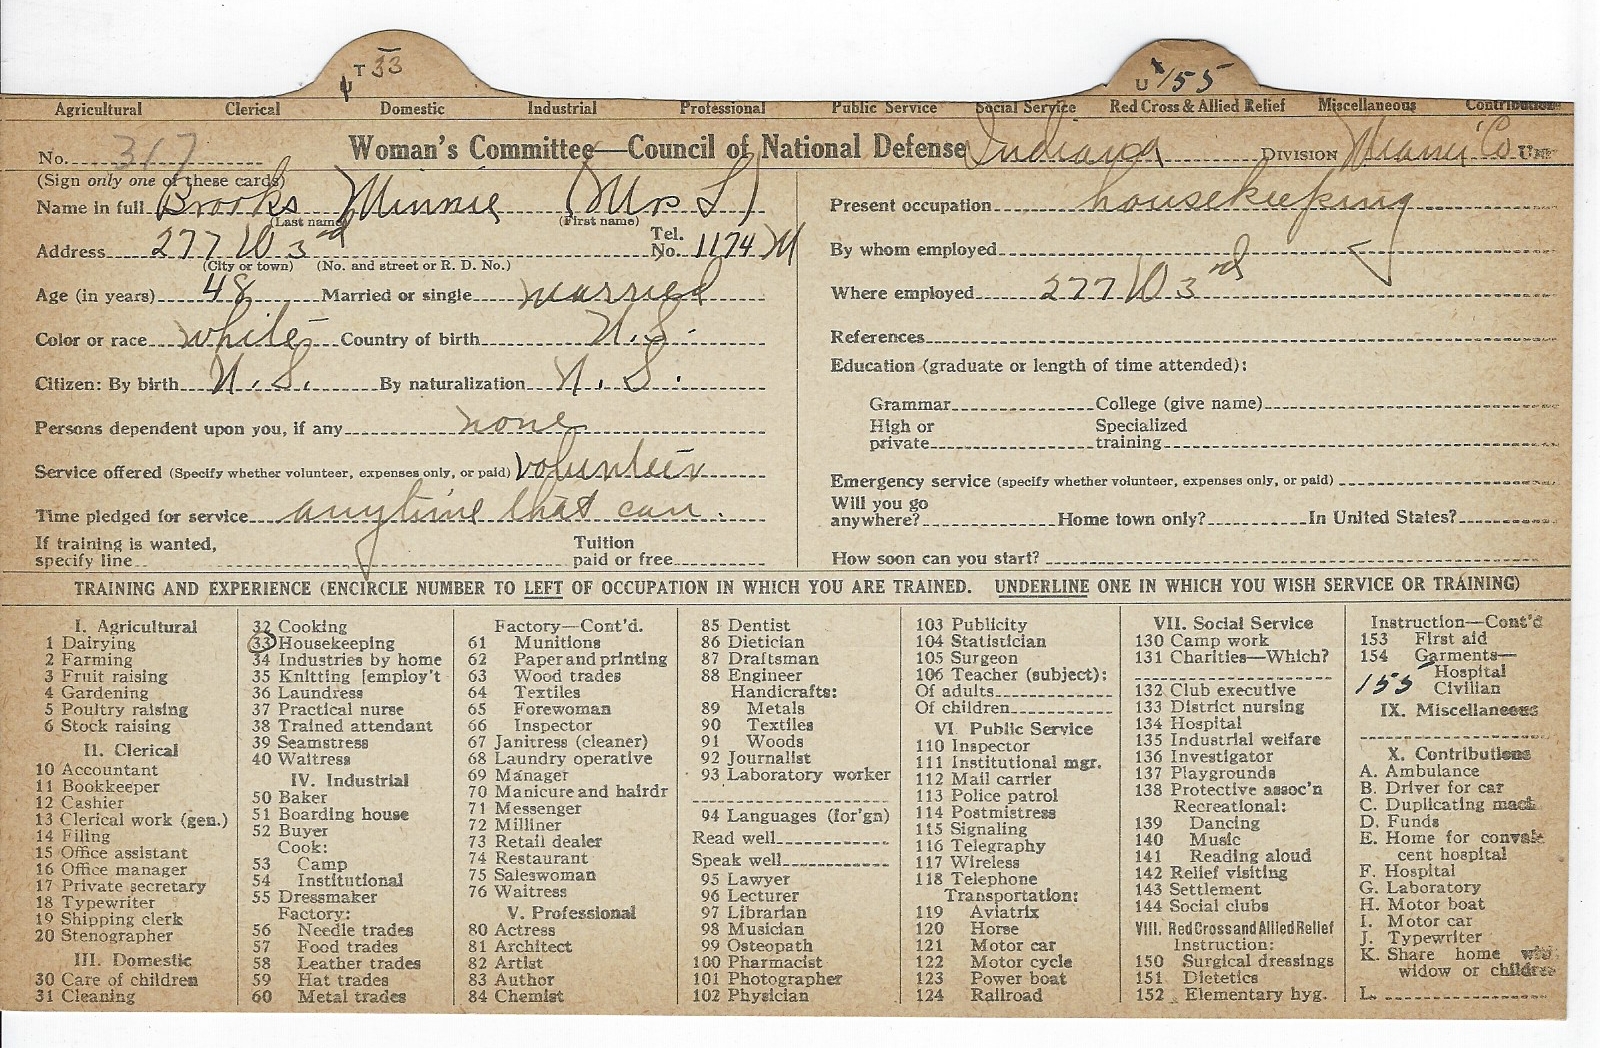 T 33
U 155
Agricultural Clerical Domestic Industrial Professional Public Service Social Service Red Cross & Allied Relief Miscellaneous Contributions
No. 317 Woman's Committee—Council of National Defense Indiana DIVISION Miami Co UNIT
(Sign only one of these cards)
Name in full Brooks Minnie (Mrs L)
(Last name) (First name)
Address 277 W 3rd Tel. No. 1174 M
(City or town) (No. and street or R. D. No.)
Age (in years) 48 Married or single married
Color or race white Country of birth U.S.
Citizen: By birth U.S. By naturalization U.S.
Persons dependent upon you, if any none
Service offered (Specify whether volunteer, expenses only, or paid) volunteer
Time pledged for service anytime that can.
If training is wanted, specify line Tuition paid or free
Present occupation housekeeping
By whom employed
Where employed 277 W 3rd
References
Education (graduate or length of time attended):
Grammar College (give name)
High or private Specialized training
Emergency service (specify whether volunteer, expenses only, or paid)
Will you go anywhere? Home town only? In United States?
How soon can you start?
TRAINING AND EXPERIENCE (ENCIRCLE NUMBER TO LEFT OF OCCUPATION IN WHICH YOU ARE TRAINED. UNDERLINE ONE IN WHICH YOU WISH SERVICE OR TRAINING)
I. Agricultural
1 Dairying
2 Farming
3 Fruit raising
4 Gardening
5 Poultry raising
6 Stock raising
II. Clerical
10 Accountant
11 Bookkeeper
12 Cashier
13 Clerical work (gen.)
14 Filing
15 Office assistant
16 Office manager
17 Private secretary
18 Typewriter
19 Shipping clerk
20 Stenographer
III. Domestic
30 Care of children
31 Cleaning
32 Cooking
33 Housekeeping
34 Industries by home
35 Knitting [employ't
36 Laundress
37 Practical nurse
38 Trained attendant
39 Seamstress
40 Waitress
IV. Industrial
50 Baker
51 Boarding house
52 Buyer
Cook:
53 Camp
54 Institutional
55 Dressmaker
Factory:
56 Needle trades
57 Food trades
58 Leather trades
59 Hat trades
60 Metal trades
Factory—Cont'd.
61 Munitions
62 Paper and printing
63 Wood trades
64 Textiles
65 Forewoman
66 Inspector
67 Janitress (cleaner)
68 Laundry operative
69 Manager
70 Manicure and hairdr
71 Messenger
72 Milliner
73 Retail dealer
74 Restaurant
75 Saleswoman
76 Waitress
V. Professional
80 Actress
81 Architect
82 Artist
83 Author
84 Chemist
85 Dentist
86 Dietician
87 Draftsman
88 Engineer
Handicrafts:
89 Metals
90 Textiles
91 Woods
92 Journalist
93 Laboratory worker
94 Languages (for'gn)
Read well
Speak well
95 Lawyer
96 Lecturer
97 Librarian
98 Musician
99 Osteopath
100 Pharmacist
101 Photographer
102 Physician
103 Publicity
104 Statistician
105 Surgeon
106 Teacher (subject):
Of adults
Of children
VI. Public Service
110 Inspector
111 Institutional mgr.
112 Mail carrier
113 Police patrol
114 Postmistress
115 Signaling
116 Telegraphy
117 Wireless
118 Telephone
Transportation:
119 Aviatrix
120 Horse
121 Motor car
122 Motor cycle
123 Power boat
124 Railroad
VII. Social Service
130 Camp work
131 Charities—Which?
132 Club executive
133 District nursing
134 Hospital
135 Industrial welfare
136 Investigator
137 Playgrounds
138 Protective assoc'n
Recreational:
139 Dancing
140 Music
141 Reading aloud
142 Relief visiting
143 Settlement
144 Social clubs
VIII. Red Cross and Allied Relief
Instruction:
150 Surgical dressings
151 Dietetics
152 Elementary hyg.
Instruction—Cont'd
153 First aid
154 Garments—
Hospital
155 Civilian
IX. Miscellaneous
X. Contributions
A. Ambulance
B. Driver for car
C. Duplicating mach
D. Funds
E. Home for convales
cent hospital
F. Hospital
G. Laboratory
H. Motor boat
I. Motor car
J. Typewriter
K. Share home with
widow or children
L.